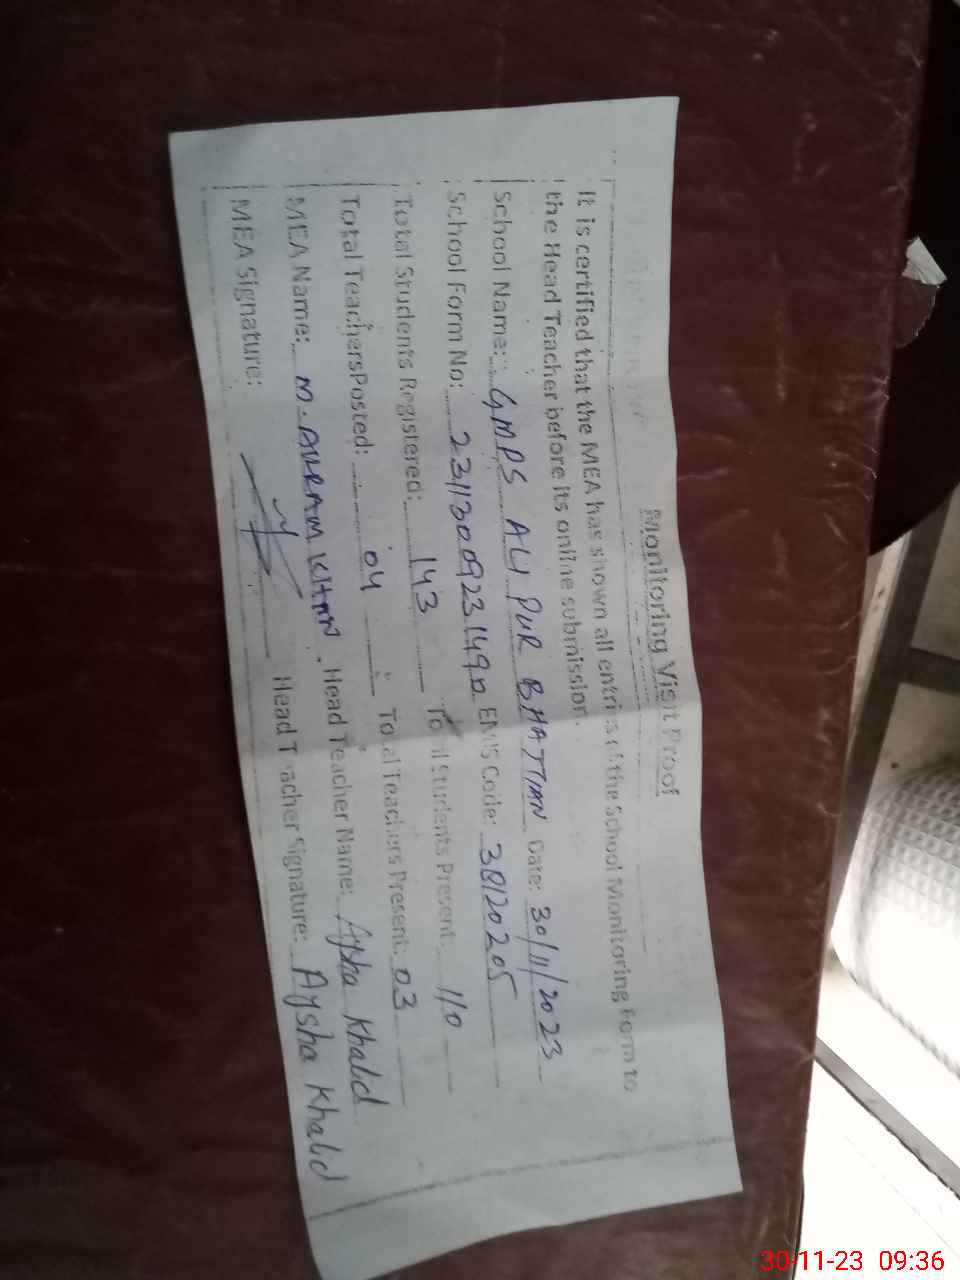 Monitoring Visit Proof
It is certified that the MEA has shown all entries of the School Monitoring Form to
the Head Teacher before its online submission.
School Name: GMPS ALI PUR BHATTIAN Date: 30/11/2023
School Form No: EMIS Code: 38120205
Total Students Registered: 143 Total Students Present: 110
Total TeachersPosted: 04 Total Teachers Present: 03
MEA Name: M. AKRAM KHAN Head Teacher Name: Aysha Khalid
MEA Signature: Head Teacher Signature: Aysha Khalid
30-11-23 09:36